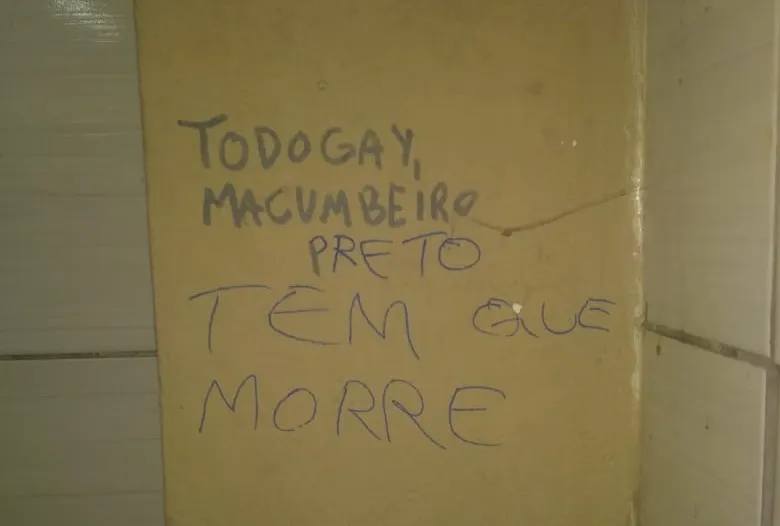 TODO GAY,
MACUMBEIRO
PRETO
TEM QUE
MORRE